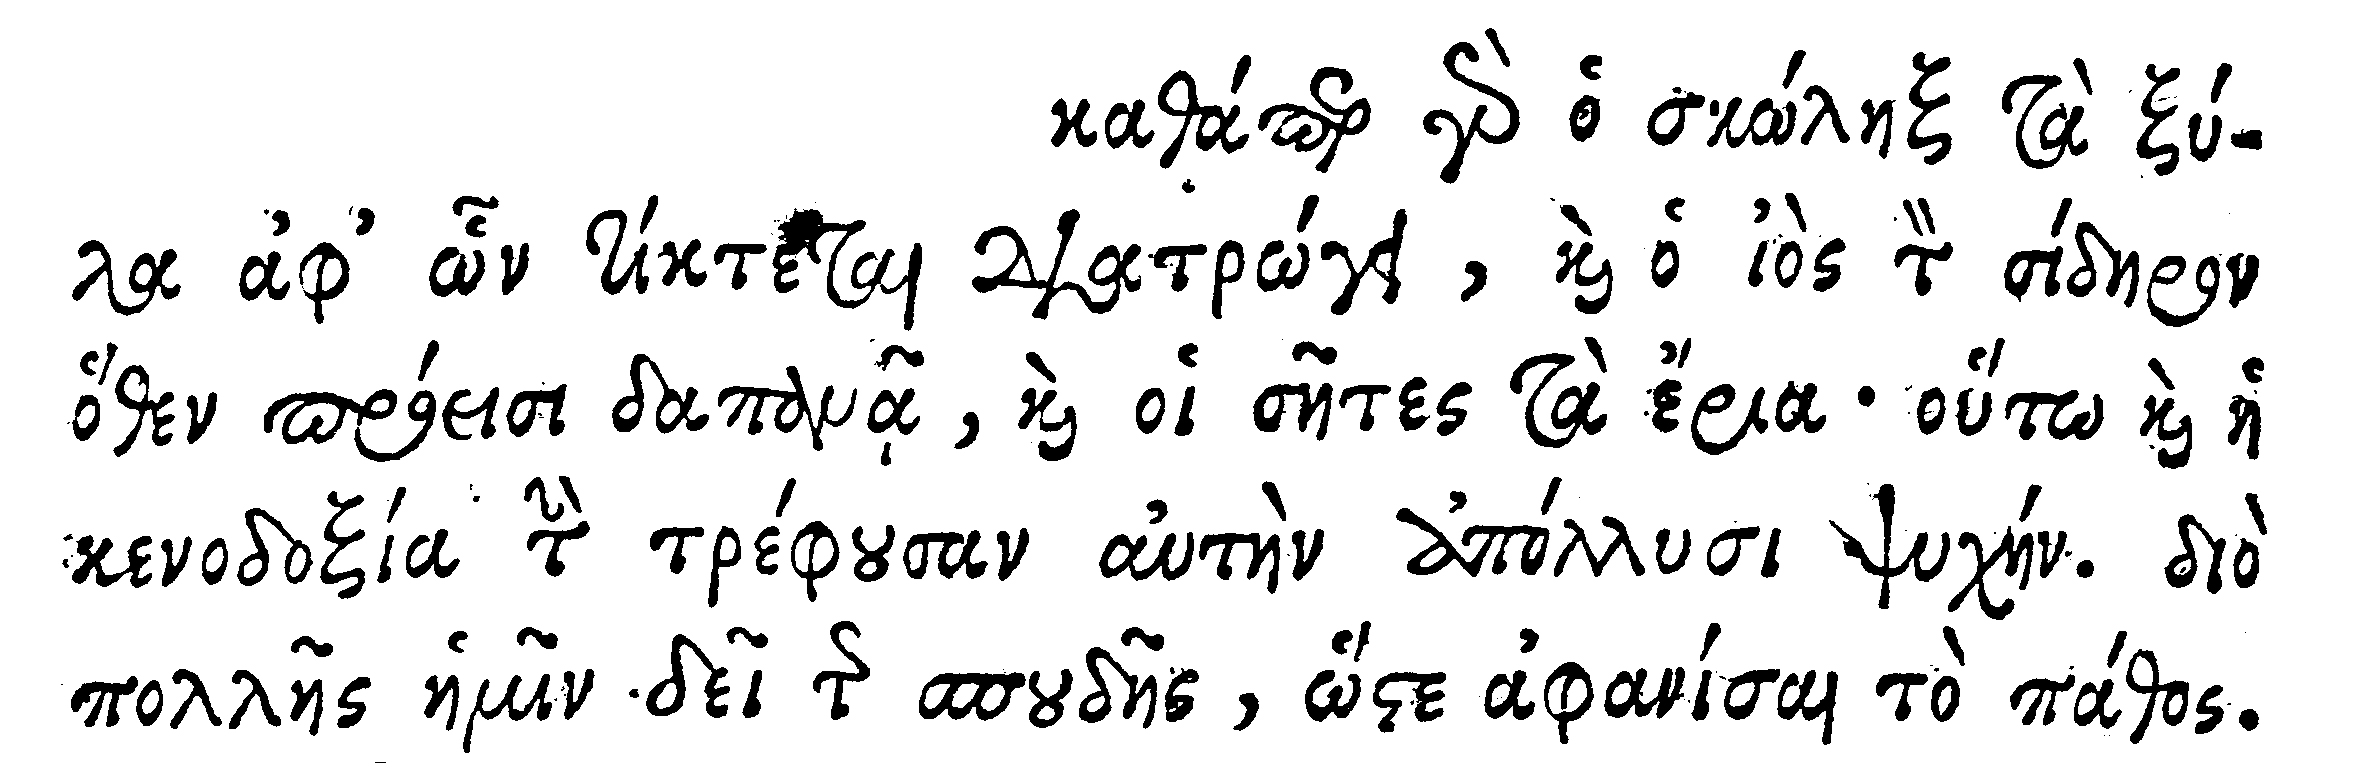 καθάπερ γὰρ ὁ σκώληξ τὰ ξύ-
λα ἀφ' ὧν τίκτεται διατρώγει, καὶ ὁ ἰὸς τὸν σίδηρον
ὅθεν πρόεισι δαπανᾷ, καὶ οἱ σῆτες τὰ ἔρια· οὕτω καὶ ἡ
κενοδοξία τὴν τρέφουσαν αὐτὴν ἀπόλλυσι ψυχήν. διὸ
πολλῆς ἡμῖν δεῖ τῆς σπουδῆς, ὥστε ἀφανίσαι τὸ πάθος.